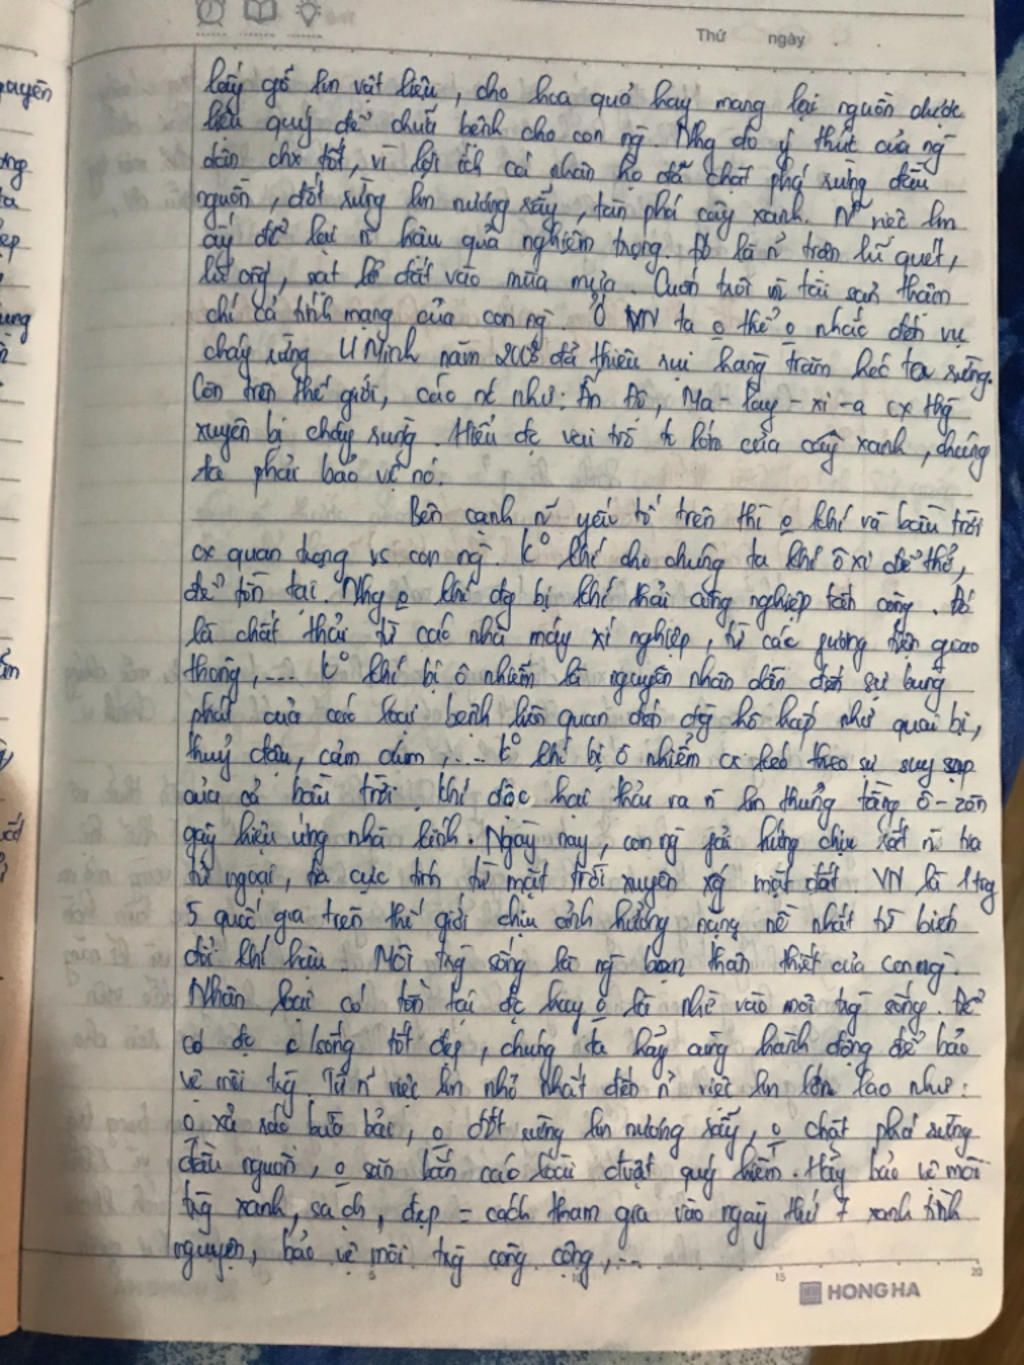 Thứ ngày
lấy gỗ lm vật liệu, cho hoa quả hay mang lại nguồn dược
liệu quý để chữa bệnh cho con ng. Nhg do ý thức của ng
dân chx tốt, vì lợi ích cá nhân họ đã chặt phá rừng đầu
nguồn, đốt rừng lm nương rẫy, tàn phá cây xanh. N~ việc lm
ấy để lại n~ hậu quả nghiêm trọng. Đó là n~ trận lũ quét,
lũ ống, sạt lở đất vào mùa mưa. Cuốn trôi tài sản thậm
chí cả tính mạng của con ng. Ở VN ta o thể o nhắc đến vụ
cháy rừng U Minh năm 2002 đã thiêu rụi hàng trăm héc ta rừng.
Còn trên thế giới, các nc như: Ấn Độ, Ma-lay-xi-a cx thg
xuyên bị cháy rừng. Hiểu đc vai trò to lớn của cây xanh, chúng
ta phải bảo vệ nó.
Bên cạnh n~ yếu tố trên thì o khí và bầu trời
cx quan trọng vs con ng. K° khí cho chúng ta khí ô xi để thở,
để tồn tại. Nhg o khí đg bị khí thải công nghiệp tấn công. Đó
là chất thải từ các nhà máy xí nghiệp, từ các phương tiện giao
thông,... K° khí bị ô nhiễm là nguyên nhân dẫn đến sự bùng
phát của các loại bệnh liên quan đến đg hô hấp như quai bị,
thuỷ đậu, cảm cúm,... K° khí bị ô nhiễm cx kéo theo sự suy sụp
của cả bầu trời. Khí độc hại thải ra n~ lm thủng tầng ô-zôn
gây hiệu ứng nhà kính. Ngày nay, con ng phải hứng chịu rất n` tia
tử ngoại, tia cực tím từ mặt trời xuyên xg mặt đất. VN là 1 trg
5 quốc gia trên thế giới chịu ảnh hưởng nặng nề nhất từ biến
đổi khí hậu. Môi trg sống là ng bạn thân thiết của con ng.
Nhân loại có tồn tại đc hay o là nhờ vào môi trg sống. Để
có đc c/sống tốt đẹp, chúng ta hãy cùng hành động để bảo
vệ môi trg. Từ n~ việc lm nhỏ nhất đến n~ việc lm lớn lao như:
o xả rác bừa bãi, o đốt rừng lm nương rẫy, o chặt phá rừng
đầu nguồn, o săn bắn các loài đvật quý hiếm. Hãy bảo vệ môi
trg xanh, sạch, đẹp = cách tham gia vào ngày thứ 7 xanh tình
nguyện, bảo vệ môi trg công cộng,...
5 15 20
HONG HA